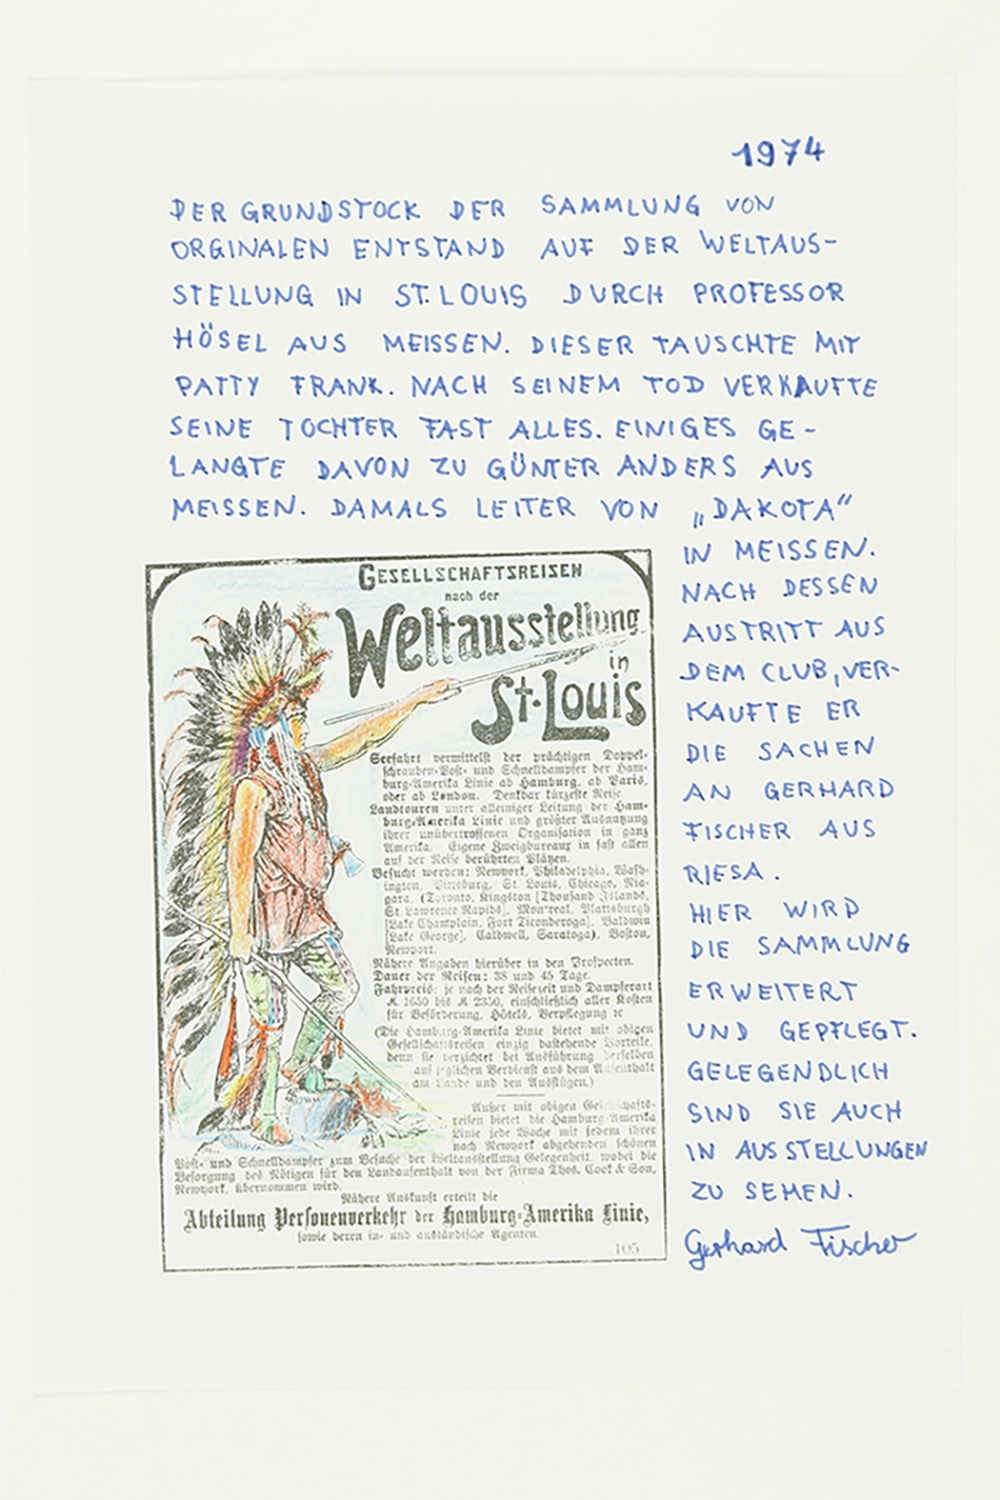 1974
DER GRUNDSTOCK DER SAMMLUNG VON
ORGINALEN ENTSTAND AUF DER WELTAUS-
STELLUNG IN ST. LOUIS DURCH PROFESSOR
HÖSEL AUS MEISSEN. DIESER TAUSCHTE MIT
PATTY FRANK. NACH SEINEM TOD VERKAUFTE
SEINE TOCHTER FAST ALLES. EINIGES GE-
LANGTE DAVON ZU GÜNTER ANDERS AUS
MEISSEN. DAMALS LEITER VON „DAKOTA“
IN MEISSEN.
NACH DESSEN
AUSTRITT AUS
DEM CLUB, VER-
KAUFTE ER
DIE SACHEN
AN GERHARD
FISCHER AUS
RIESA.
HIER WIRD
DIE SAMMLUNG
ERWEITERT
UND GEPFLEGT.
GELEGENDLICH
SIND SIE AUCH
IN AUSSTELLUNGEN
ZU SEHEN.
Gerhard Fischer
GESELLSCHAFTSREISEN
nach der
Weltausstellung
in
St. Louis
Seefahrt vermittelst der prächtigen Doppel-
schrauben-Post- und Schnelldampfer der Ham-
burg-Amerika Linie ab Hamburg, ab Paris,
oder ab London. Denkbar kürzeste Reise.
Landtouren unter alleiniger Leitung der Ham-
burg-Amerika Linie und größter Ausnutzung
ihrer unübertroffenen Organisation in ganz
Amerika. Eigene Zweigbureaux in fast allen
auf der Reise berührten Plätzen.
Besucht werden: Newyork, Philadelphia, Wash-
ington, Pittsburg, St. Louis, Chicago, Nia-
gara, (Toronto, Kingston [Thousand Islands,
St. Lawrence Rapids], Montreal, Plattsburgh
[Lake Champlain, Fort Ticonderoga], Baldwin
[Lake George], Caldwell, Saratoga), Boston,
Newport.
Nähere Angaben hierüber in den Prospecten.
Dauer der Reisen: 38 und 45 Tage.
Fahrpreis: je nach der Reisezeit und Dampferart
M. 1650 bis M. 2350, einschließlich aller Kosten
für Beförderung, Hôtels, Verpflegung ꝛc
(Die Hamburg-Amerika Linie bietet mit obigen
Gesellschaftsreisen einzig dastehende Vorteile,
denn sie verzichtet bei Ausführung derselben
auf jeglichen Verdienst aus dem Aufenthalt
am Lande und den Ausflügen.)
Außer mit obigen Gesellschafts-
reisen bietet die Hamburg-Amerika
Linie jede Woche mit jedem ihrer
nach Newyork abgehenden schönen
Post- und Schnelldampfer zum Besuche der Weltausstellung Gelegenheit, wobei die
Besorgung des Nötigen für den Landaufenthalt von der Firma Thos. Cook & Son,
Newyork, übernommen wird.
Nähere Auskunft erteilt die
Abteilung Personenverkehr der Hamburg-Amerika Linie,
sowie deren in- und ausländische Agenten.
105